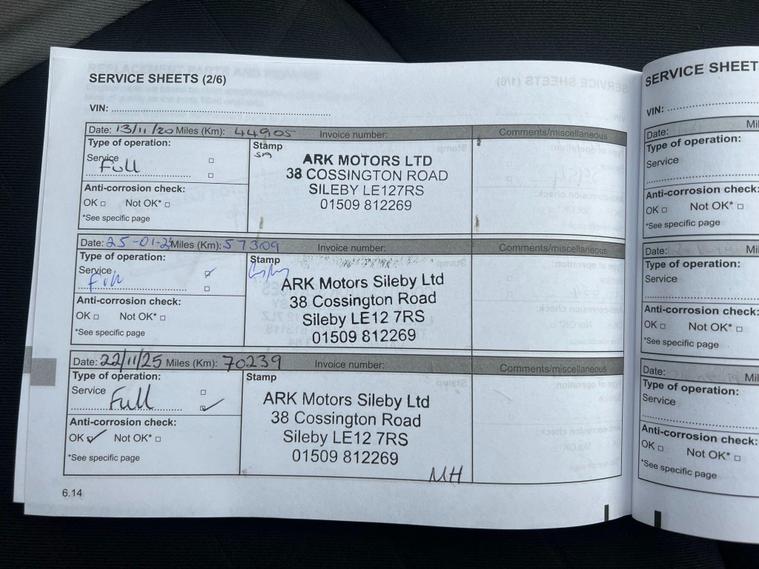 SERVICE SHEETS (2/6)
VIN:
Date: 13/11/20 Miles (Km): 44905 Invoice number: Comments/miscellaneous
Type of operation:
Service
Full
Anti-corrosion check:
OK Not OK*
*See specific page
Stamp
ARK MOTORS LTD
38 COSSINGTON ROAD
SILEBY LE127RS
01509 812269
Date: 25-01-2 Miles (Km): 57309 Invoice number: Comments/miscellaneous
Type of operation:
Service
Full
Anti-corrosion check:
OK Not OK*
*See specific page
Stamp
ARK Motors Sileby Ltd
38 Cossington Road
Sileby LE12 7RS
01509 812269
Date: 22/11/25 Miles (Km): 70239 Invoice number: Comments/miscellaneous
Type of operation:
Service
Full
Anti-corrosion check:
OK ✓ Not OK*
*See specific page
Stamp
ARK Motors Sileby Ltd
38 Cossington Road
Sileby LE12 7RS
01509 812269
MH
6.14
SERVICE SHEET
VIN:
Date: Mi
Type of operation:
Service
Anti-corrosion check:
OK Not OK*
*See specific page
Date: Mil
Type of operation:
Service
Anti-corrosion check:
OK Not OK*
*See specific page
Date: Mil
Type of operation:
Service
Anti-corrosion check:
OK Not OK*
*See specific page